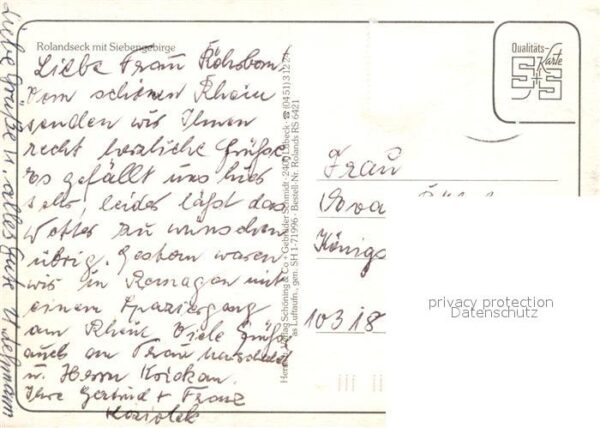 Rolandseck mit Siebengebirge
Liebe Frau
Vom schönen Rhein
senden wir Ihnen
recht herzliche Grüße
Es gefällt uns hier
sehr, leider läßt das
Wetter zu wünschen
übrig. Gestern waren
wir in Remagen mit
einem Spaziergang
am Rhein. Viele Grüße
auch an Frau
u. Herrn
Ihre Gertrud + Franz
Koziolek
Liebe Grüße u. alles Gute
Schöning & Co + Gebrüder Schmidt · 2400 Lübeck · ☎ (0451) 31224
Luftaufn., gen. SH 1-71996 · Bestell-Nr. Rolands RS 6421
Qualitäts-
Karte
S+S
Frau
Königs
10318
privacy protection
Datenschutz